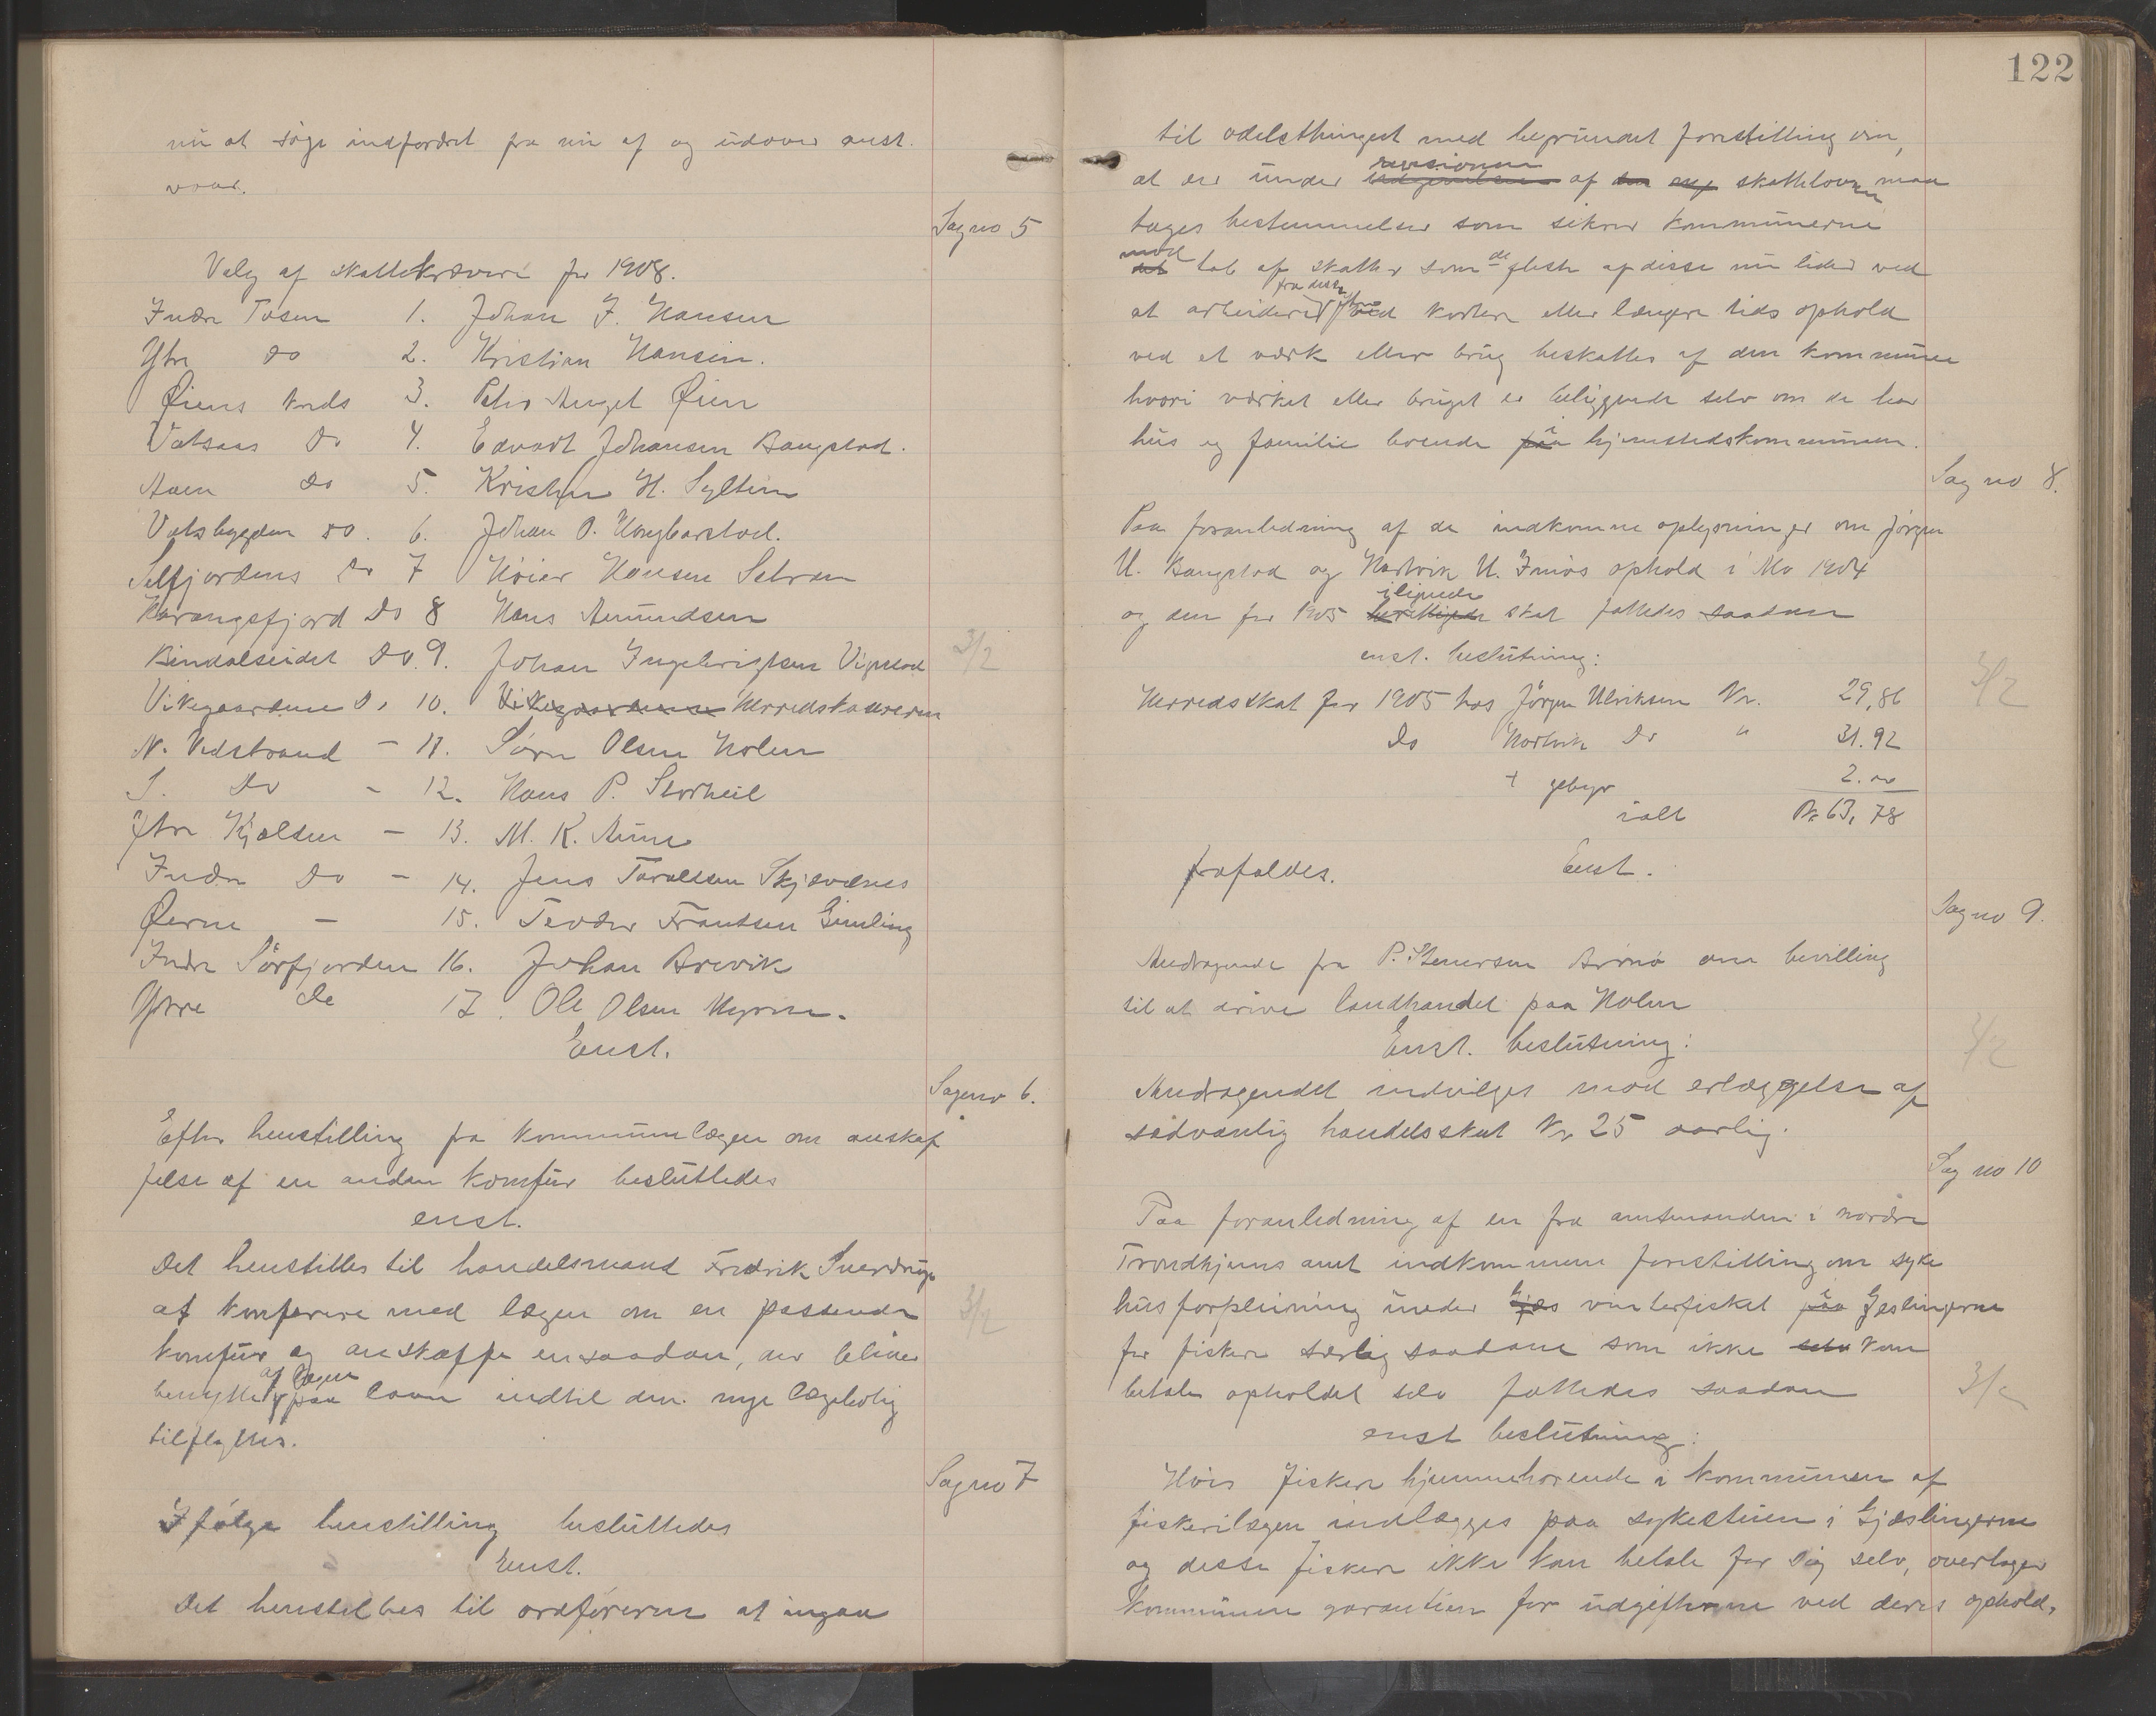 nu at søge indfordret fra nu af og udover anst.
vaar.
Sagno 5
Valg af skattekrævere for 1908.
Indre Tosen 1. Johan J. Hansen
Ytre do 2. Kristian Hansen.
Øiens krds 3. Peter August Øien
Vatsaas do 4. Edvart Johansen Bangstad.
Aaen do 5. Kristen H. Sylten
Vatsbygden do. 6. Johan O. Kongbarstad.
Selfjordens do 7 Høier Hansen Selvær
Harangsfjord do 8 Hans Amundsen
Bindalseidet do 9. Johan Ingebrigtsen Vigestad
3/2
Vikegaardene do 10. Herredskasereren
N. Vedstrand - 11. Sørn Olsen Holm
S. do - 12. Hans P. Storheil
Ytre Kjælsen - 13. M. K. Aune
Indre do - 14. Jens Taraldsen Skjævænes
Øerne - 15. Teodor Frantsen Gimling
Indre Sörfjorden 16. Johan Brevik
Ytre do 17. Ole Olsen Myrme.
Enst.
Sagno 6.
Efter henstilling fra kommunelægen om anskaf
felse af en anden komfur besluttedes
enst.
Det henstilles til handelsmand Fredrik Sverdrup
at konferere med lægen om en passende
3/2
komfur og anskaffe en saadan, der bliver
af lægen
benytte paa laan indtil den nye lægebolig
tilflyttes.
Sagno 7
Ifølge henstilling besluttedes
Enst.
Det henstilles til ordføreren at ingaa
122
til odelsthinget med begrundet forestilling om,
revisionen
at der under udgivelsen af den nye skattelovene maa
tages bestemmelser som sikrer kommunerne
mod
det tab af skatter som de fleste af disse nu lider ved
fra disse
at arbeidere ved kortere eller længere tids ophold
ved et værk eller brug beskattes af den kommune
hvori værket eller bruget er beliggende selv om de har
hus og familie boende paa i hjemstedskommunen.
Sag no 8.
Paa foranledning af de indkomne oplysninger om Jørgen
U. Bangstad og Hartvik U. ophold i Mo 1904
ilignede
og den for 1905 skat fattedes saadan
enst. beslutning:
Herredsskat for 1905 hos Jörgen Ulriksen Kr. 29,86
3/2
do Hartvik do " 31.92
+ gebyr 2.00
ialt Kr 63,78
frafaldes. Enst.
Sag no 9.
Andragende fra P. Stenersen Årnö om bevilling
til at drive landhandel paa Holm
Enst. beslutning:
3/2
Andragendet indvilges mod erlæggelse af
sædvanlig handelsskat Kr 25 aarlig.
Sag no 10
Paa foranledning af en fra amtmanden i nordre
Trondhjems amt indkommen forestilling om syke
husforpleining under Gjæs vinterfisket paa i Gjeslingerne
for fiskere særlig saadane som ikke selv kan
betale opholdet selv fattedes saadan
3/2
enst beslutning:
Hvis fiskere hjemmehørende i kommunen af
fiskerilægen indlægges paa sykestuen i Gjæslingerne
og disse fiskere ikke kan betale for sig selv, overtager
kommunen garantien for udgifterne ved deres ophold,